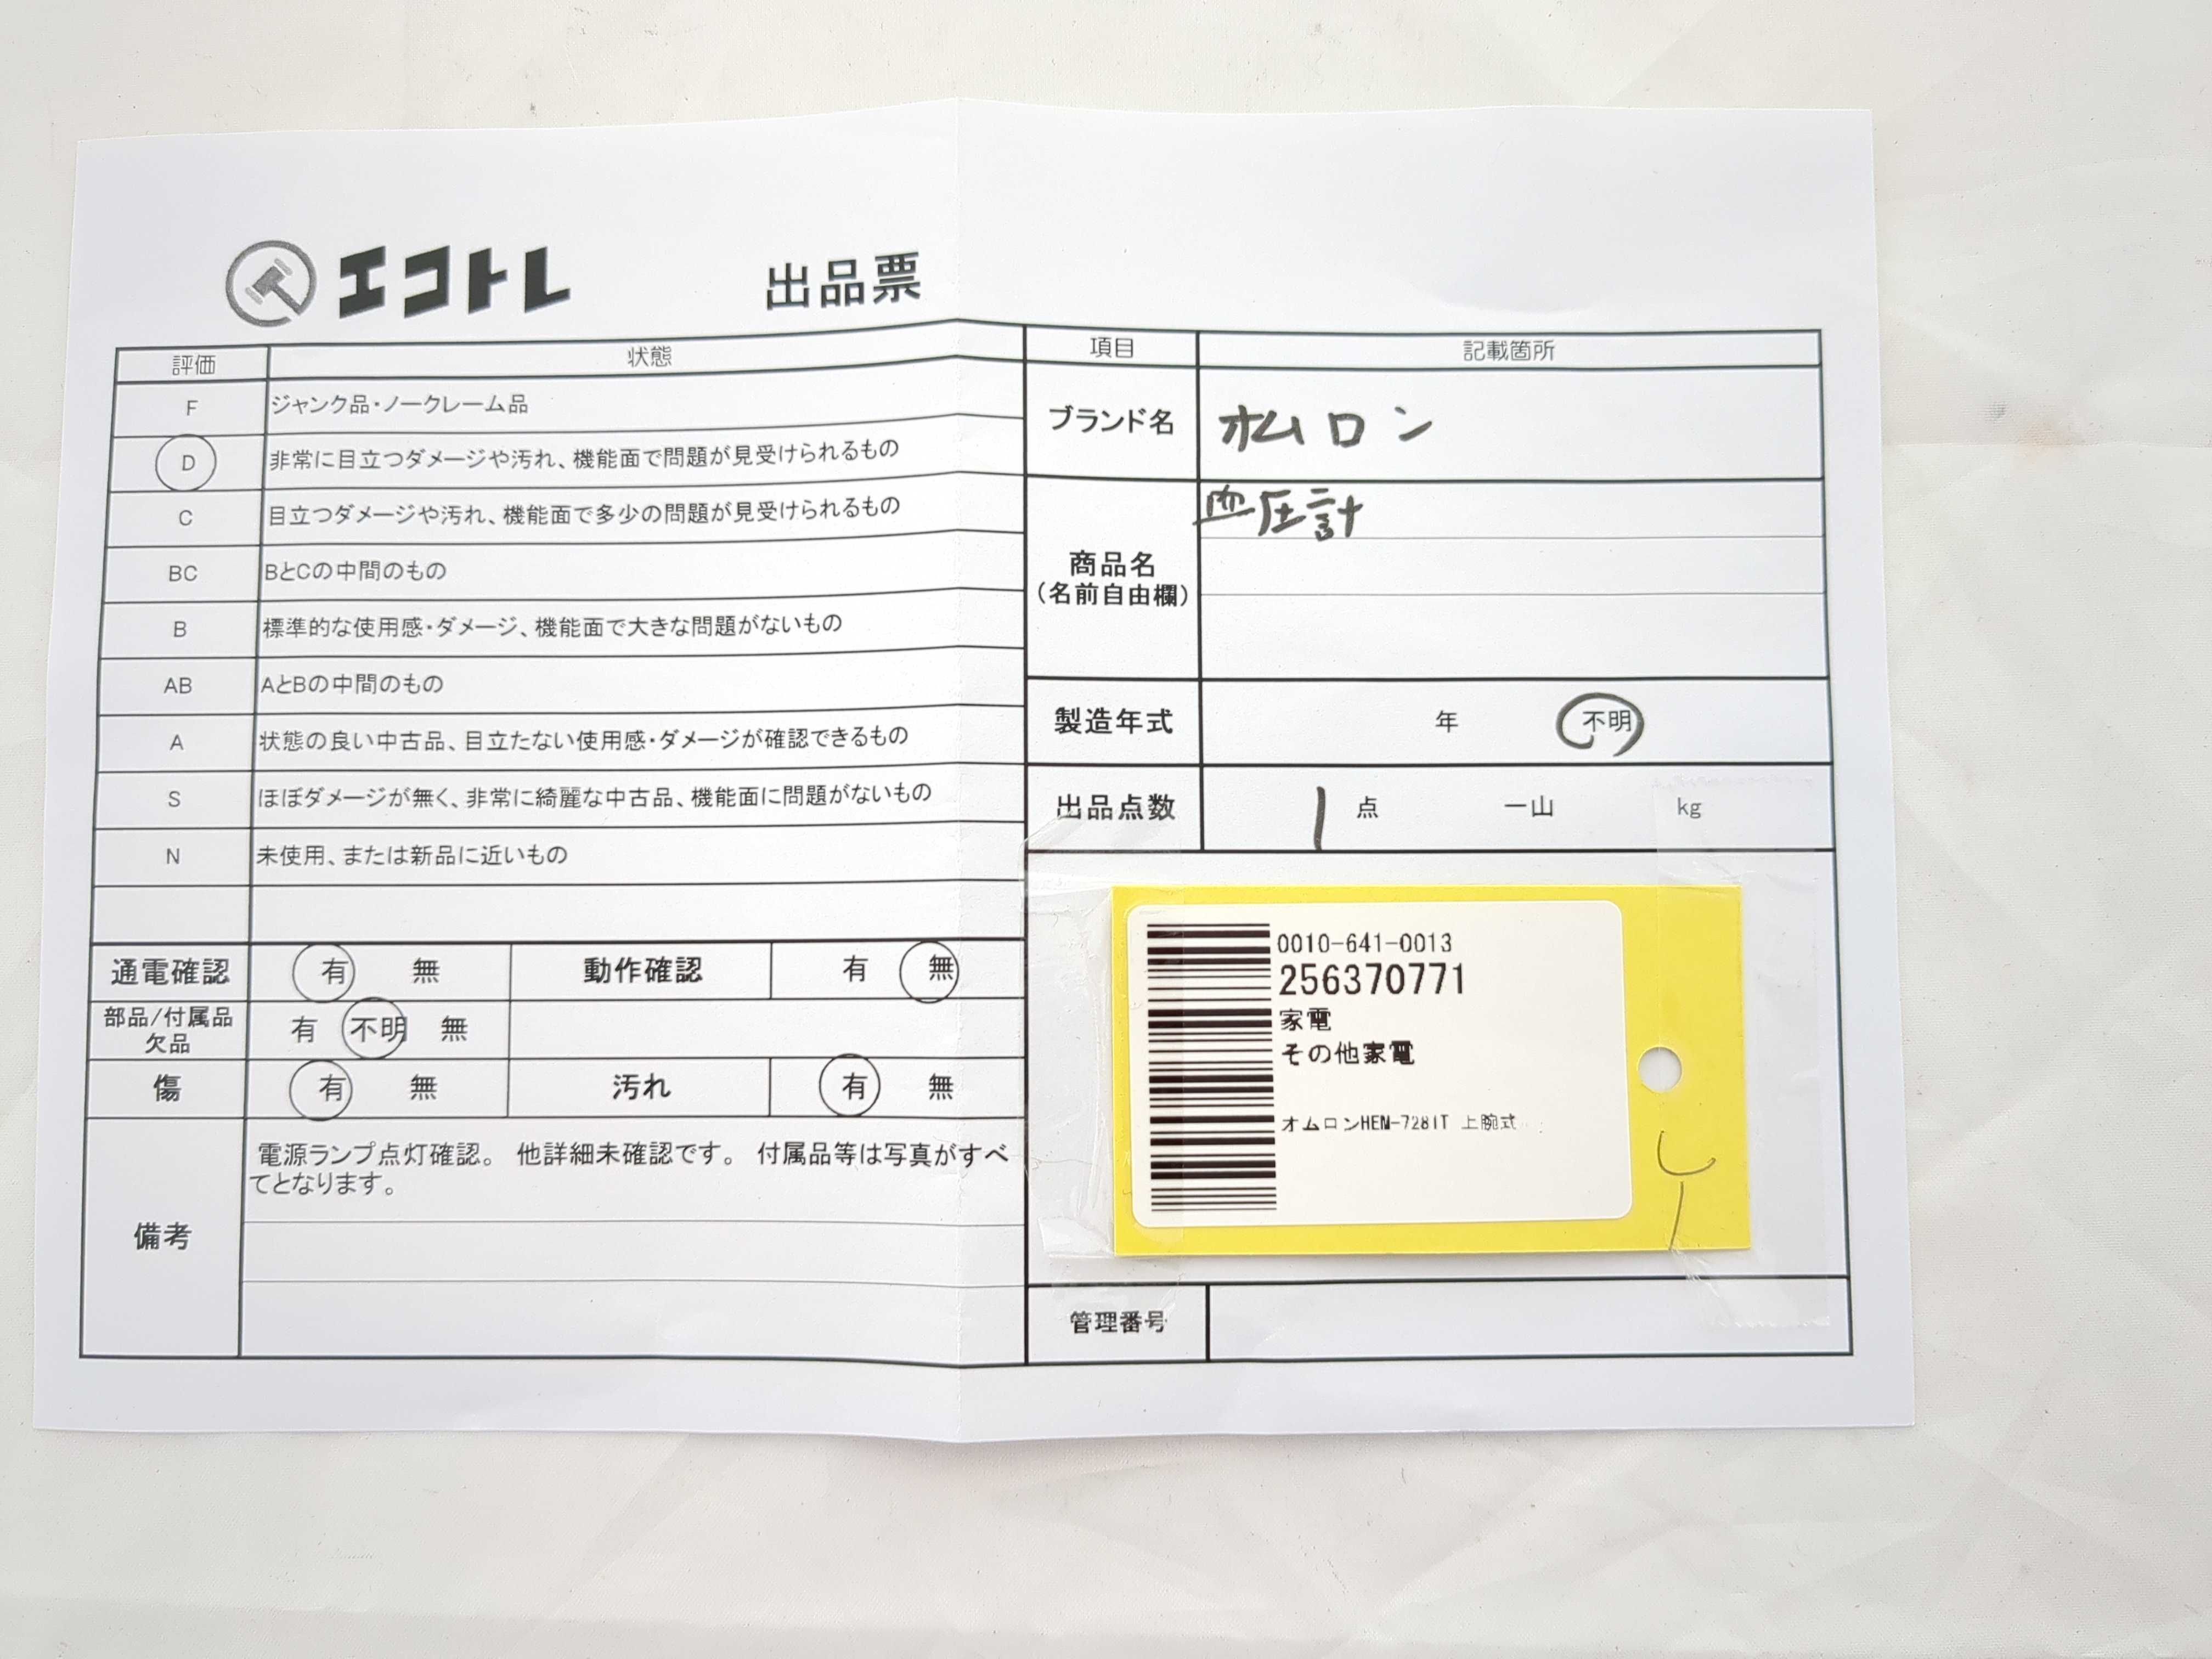 エコトレ 出品票
評価 状態
F ジャンク品・ノークレーム品
D 非常に目立つダメージや汚れ、機能面で問題が見受けられるもの
C 目立つダメージや汚れ、機能面で多少の問題が見受けられるもの
BC BとCの中間のもの
B 標準的な使用感・ダメージ、機能面で大きな問題がないもの
AB AとBの中間のもの
A 状態の良い中古品、目立たない使用感・ダメージが確認できるもの
S ほぼダメージが無く、非常に綺麗な中古品、機能面に問題がないもの
N 未使用、または新品に近いもの
通電確認 有 無 動作確認 有 無
部品/付属品
欠品 有 不明 無
傷 有 無 汚れ 有 無
備考
電源ランプ点灯確認。 他詳細未確認です。 付属品等は写真がすべ
てとなります。
項目 記載箇所
ブランド名 オムロン
商品名
(名前自由欄)
血圧計
製造年式 年 不明
出品点数 1 点 一山 kg
0010-641-0013
256370771
家電
その他家電
オムロンHEM-7281T 上腕式
管理番号